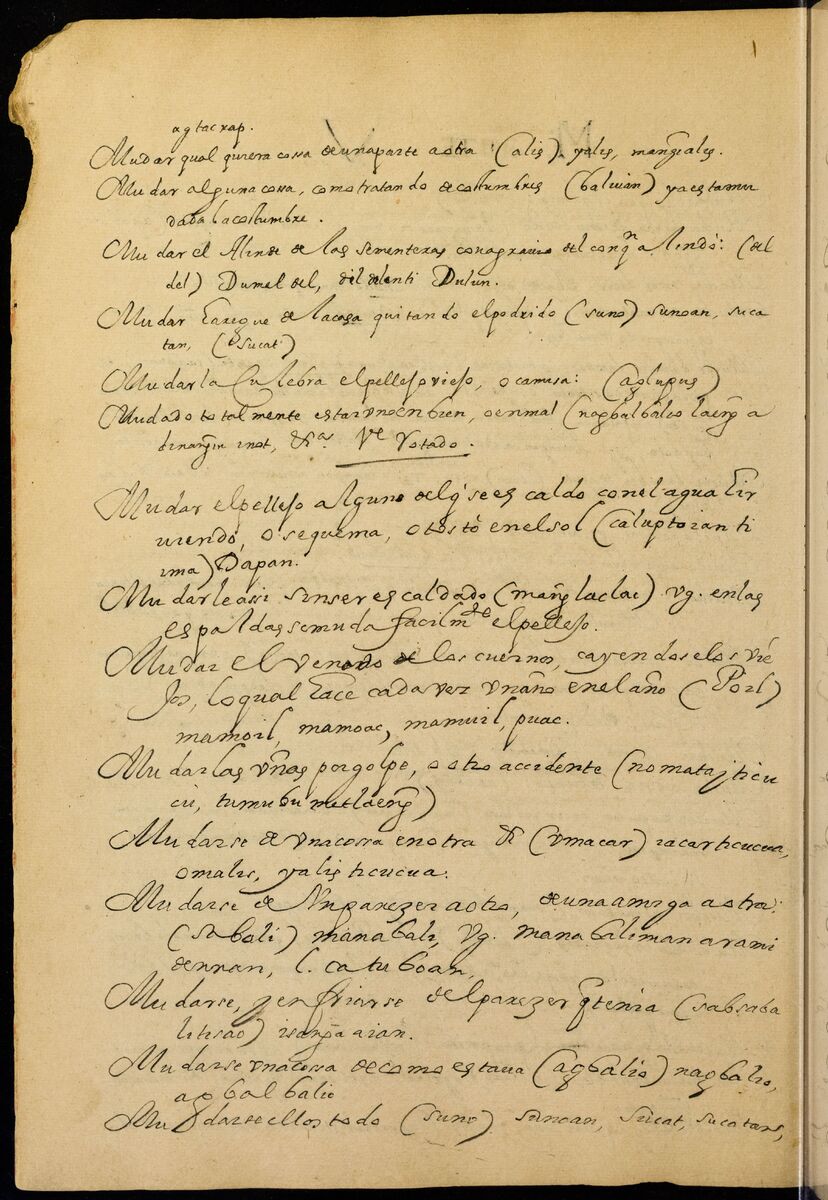 agtacrap.
Mudar qual quiera cossa de una parte a otra (alis) yalis, mang̃ialis.
Mudar alguna cossa, como tratando de costumbres (baliuan) ya esta mu
dada la costumbre.
Mudar el Alinde de las sementeras con agrauio del conqⁿ alindó: (del
del) Dumel del, dildelenti Dulun.
Mudar Earigue de la casa quitando el podrido (suno) sunoan, suca
tan, (sucat)
Mudar la Culebra el pellejo viejo, o camisa: (aglupus)
Mudado totalmente estar uno en bien, o en mal (nagbalbalio laeng̃ a
dinang̃in inot, &ᵃ. Vᵉ Votado.
Mudar el pellejo alguno del q̃ se es caldo con el agua Eir
uiendo, o se quema, o tosto en el sol (caluptoian ti
ima) Dapan.
Mudarle assi sin ser escaldado (mang̃laclac) vg. en las
espaldas se muda facilmᵗᵉ el pellejo.
Mudar el venado de los cuernos, cayendoselos vie
jos, lo qual Eace cada vez un año en el año (Poil)
mamoil, mamoac, mamuil, puac.
Mudar las vñas por golpe, o otro accidente (nomatay ti cu
cu, tumubu met laeng̃)
Mudarse de vna cossa en otra & (vmacar) iacar ti cucua,
omalis, yalis ti cucua.
Mudarse de Vn parezer a otro, de una amiga a otra:
(sabali) manabali, vg. manabaliman arami
dennan, l. catuboan,
Mudarse, y enfriarse del parezer q̃ tenia (sabsaba
li tisao) isang̃a aian.
Mudarse vna cossa de como estaua (agbalio) nagbalio,
agbalbalio
Mudarse ellos todo (suno) sunoan, sucat, sucatan,